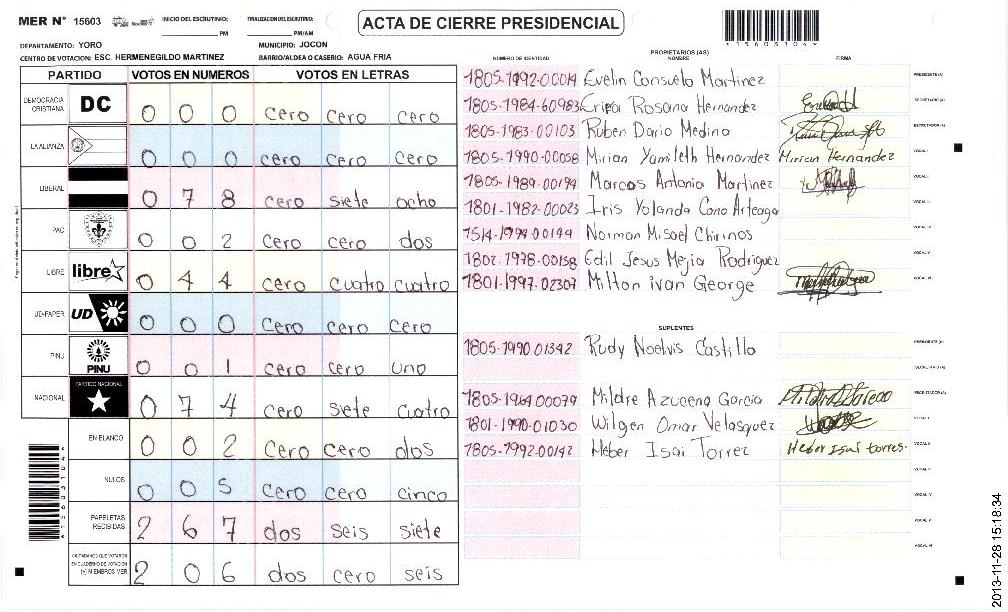 MER N° 15603 INICIO DEL ESCRUTINIO: PM FINALIZACION DEL ESCRUTINIO: PM/AM
ACTA DE CIERRE PRESIDENCIAL
*15603104*
DEPARTAMENTO: YORO MUNICIPIO: JOCON
CENTRO DE VOTACION: ESC. HERMENEGILDO MARTINEZ BARRIO/ALDEA O CASERIO: AGUA FRIA
PARTIDO VOTOS EN NUMEROS VOTOS EN LETRAS
DEMOCRACIA CRISTIANA DC 0 0 0 cero cero cero
LA ALIANZA 0 0 0 cero cero cero
LIBERAL 0 7 8 cero siete ocho
PAC 0 0 2 cero cero dos
LIBRE libre 0 4 4 cero cuatro cuatro
UD-FAPER UD 0 0 0 cero cero cero
PINU PINU 0 0 1 cero cero uno
NACIONAL PARTIDO NACIONAL 0 7 4 cero siete cuatro
EN BLANCO 0 0 2 cero cero dos
NULOS 0 0 5 cero cero cinco
PAPELETAS RECIBIDAS 2 6 7 dos seis siete
CIUDADANOS QUE VOTARON EN CUADERNO DE VOTACION (+) MIEMBROS MER 2 0 6 dos cero seis
PROPIETARIOS (AS)
NUMERO DE IDENTIDAD NOMBRE FIRMA
1805-1992-00014 Evelin Consuelo Martinez PRESIDENTE(A)
1805-1984-60983 Erika Rosana Hernandez SECRETARIO(A)
1805-1983-00103 Ruben Dario Medina ESCRUTADOR(A)
1805-1990-00058 Mirian Yamileth Hernandez Mirian Hernandez VOCAL I
1805-1989-00194 Marcos Antonio Martinez VOCAL II
1801-1982-00023 Iris Yolanda Cano Arteaga VOCAL III
1514-1994-00194 Norman Misael Chirinos VOCAL IV
1807-1978-00158 Edil Jesus Mejia Rodriguez VOCAL V
1801-1997-02307 Milton ivan George VOCAL VI
SUPLENTES
1805-1990-01342 Rudy Noelvis Castillo PRESIDENTE(A)
SECRETARIO(A)
1805-1964-00079 Mildre Azucena Garcia ESCRUTADOR(A)
1801-1990-01030 Wilgen Omar Velasquez VOCAL I
1805-1992-00142 Heber Isai Torrez Heber Isai torres. VOCAL II
VOCAL III
VOCAL IV
VOCAL V
VOCAL VI
2013-11-28 15:18:34